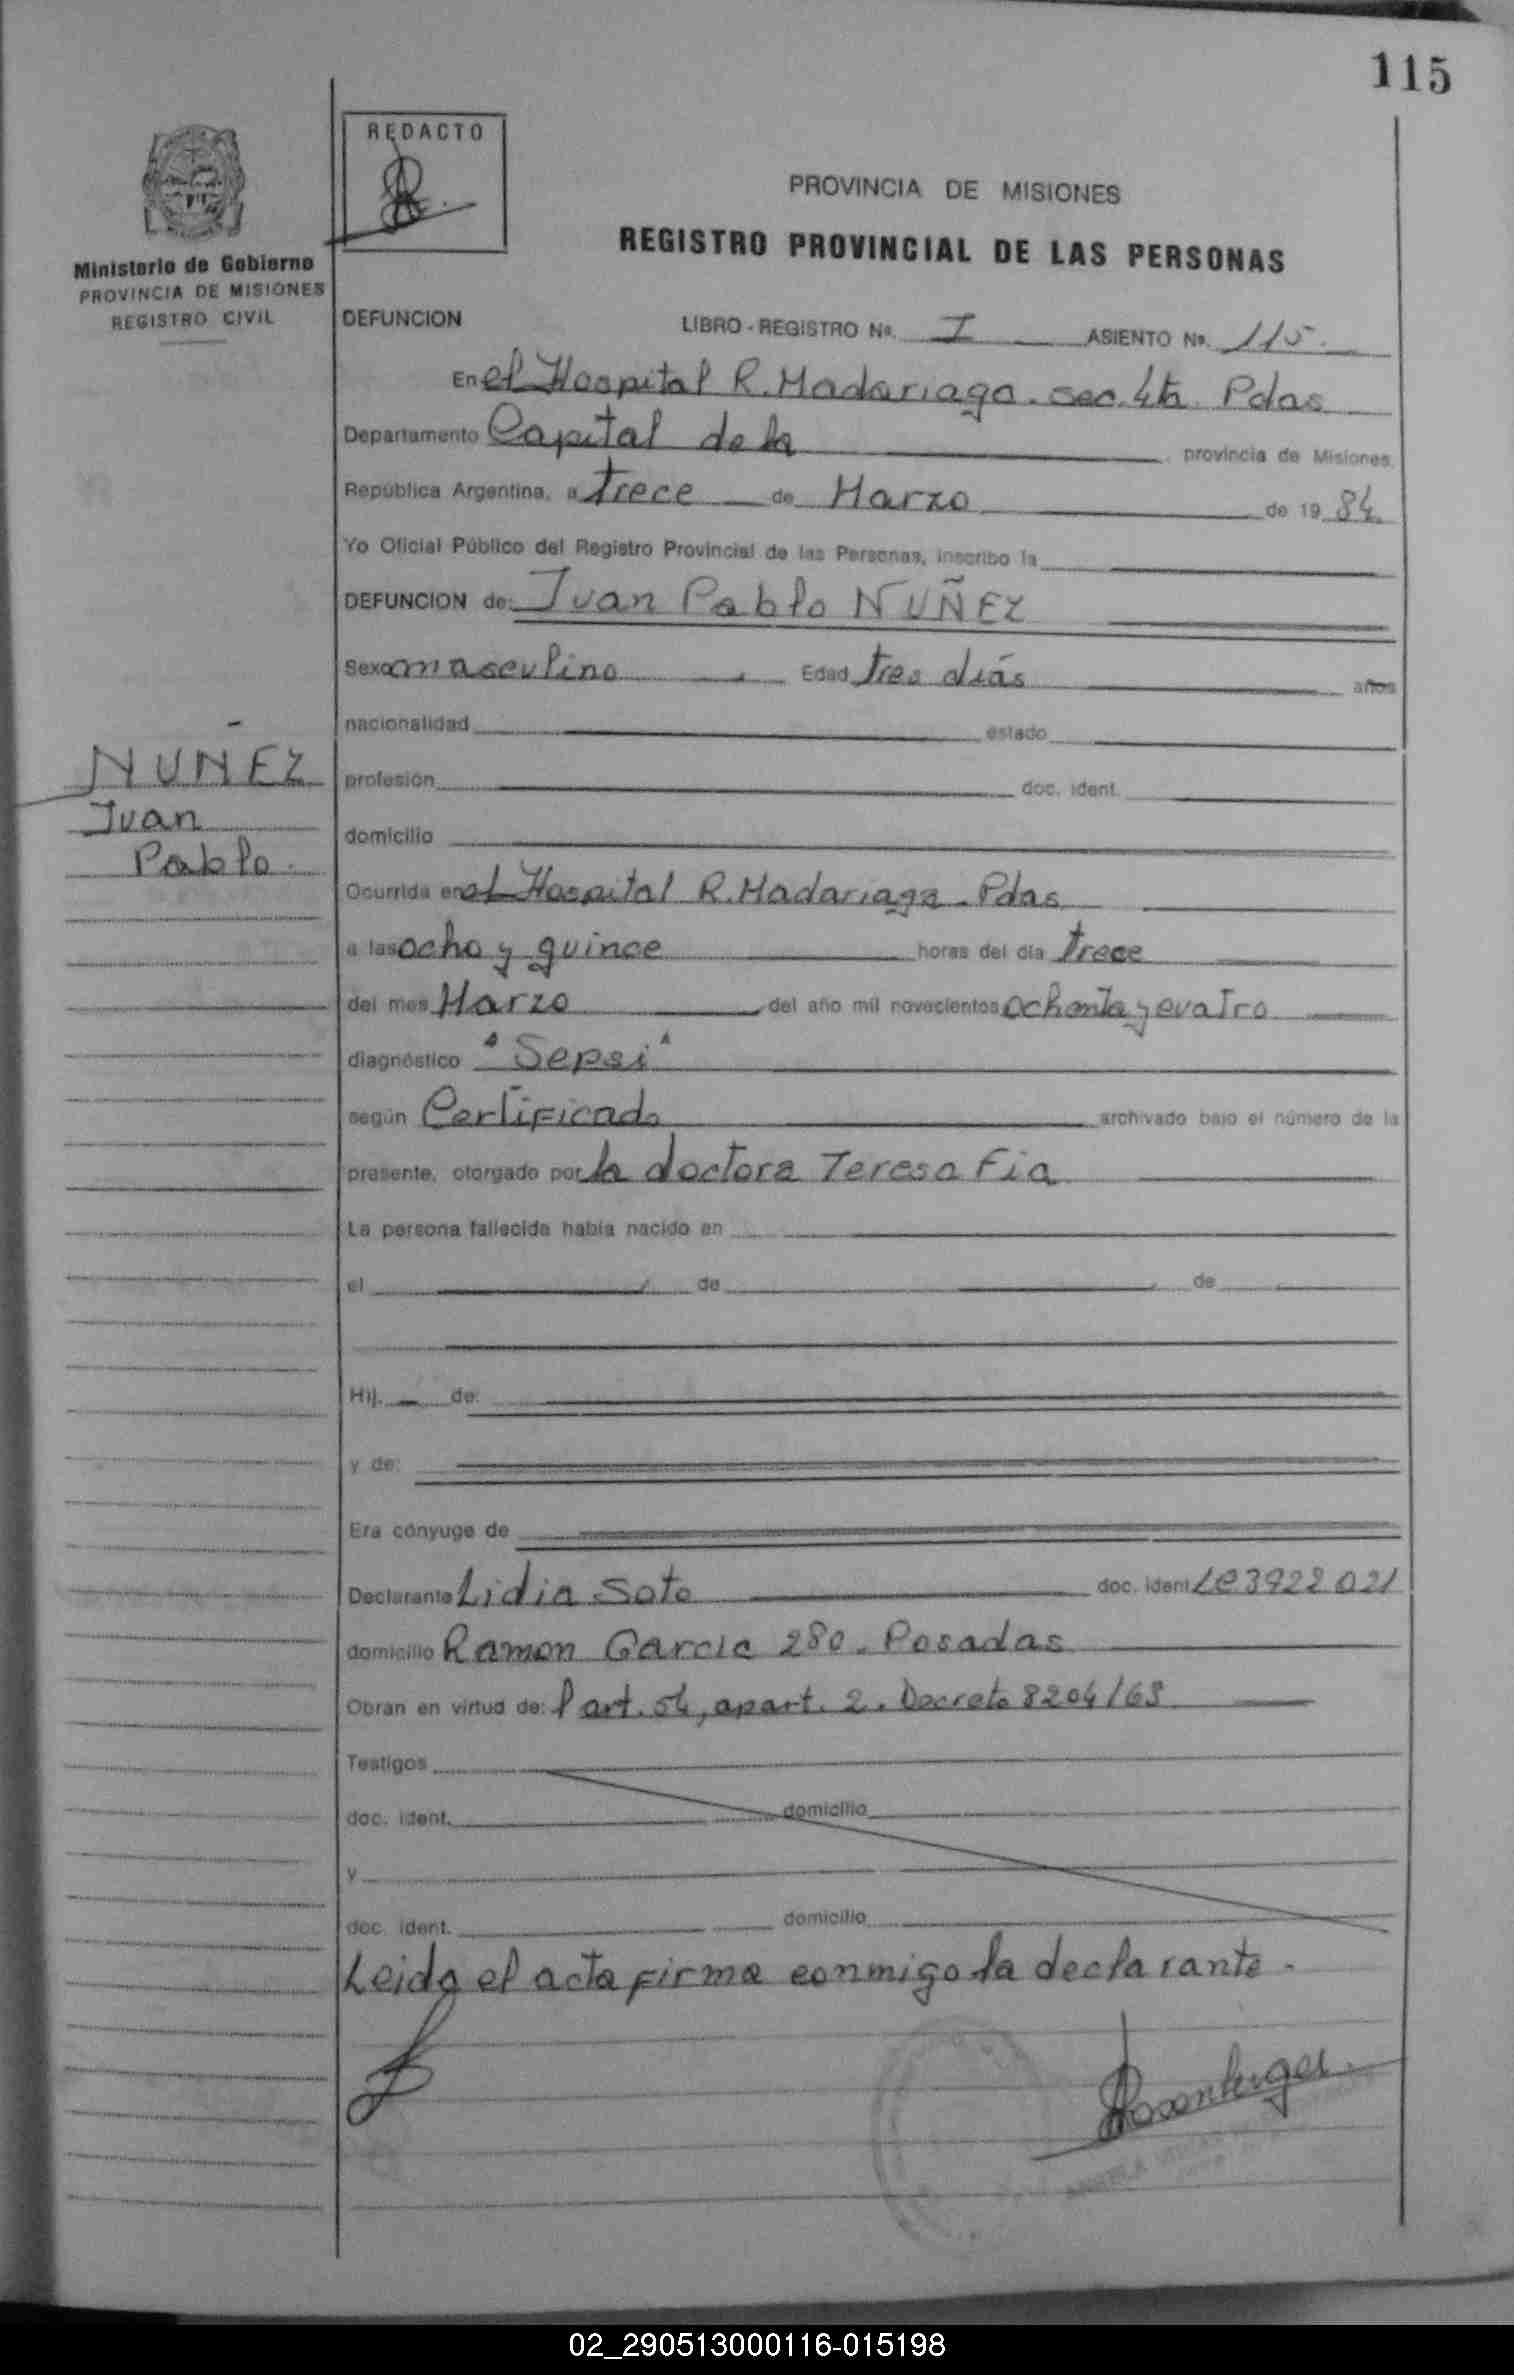 115
REDACTO
PROVINCIA DE MISIONES
REGISTRO PROVINCIAL DE LAS PERSONAS
Ministerio de Gobierno
PROVINCIA DE MISIONES
REGISTRO CIVIL
DEFUNCION LIBRO - REGISTRO Nº. I ASIENTO Nº. 115.
En el Hospital R. Madariaga. sec. 4ta. Pdas
Departamento Capital de la provincia de Misiones,
República Argentina, a trece de Marzo de 1984.
Yo Oficial Público del Registro Provincial de las Personas, inscribo la
DEFUNCION de: Juan Pablo NUÑEZ
Sexo masculino Edad tres diás años
nacionalidad estado
NUÑEZ
Juan
Pablo.
profesión doc. ident.
domicilio
Ocurrida en el Hospital R. Madariaga. Pdas
a las ocho y quince horas del día trece
del mes Marzo del año mil novecientos ochenta y cuatro
diagnóstico "Sepsi"
según Certificado archivado bajo el número de la
presente, otorgado por la doctora Teresa Fia
La persona fallecida había nacido en
el de de
Hij. de:
y de:
Era cónyuge de
Declarante Lidia Soto doc. ident. LC 3922021
domicilio Ramon Garcia 280. Posadas
Obran en virtud de: l art. 54, apart. 2. Decreto 8204/63
Testigos
doc. ident. domicilio
y
doc. ident. domicilio
Leida el acta firma conmigo la declarante.
02_290513000116-015198